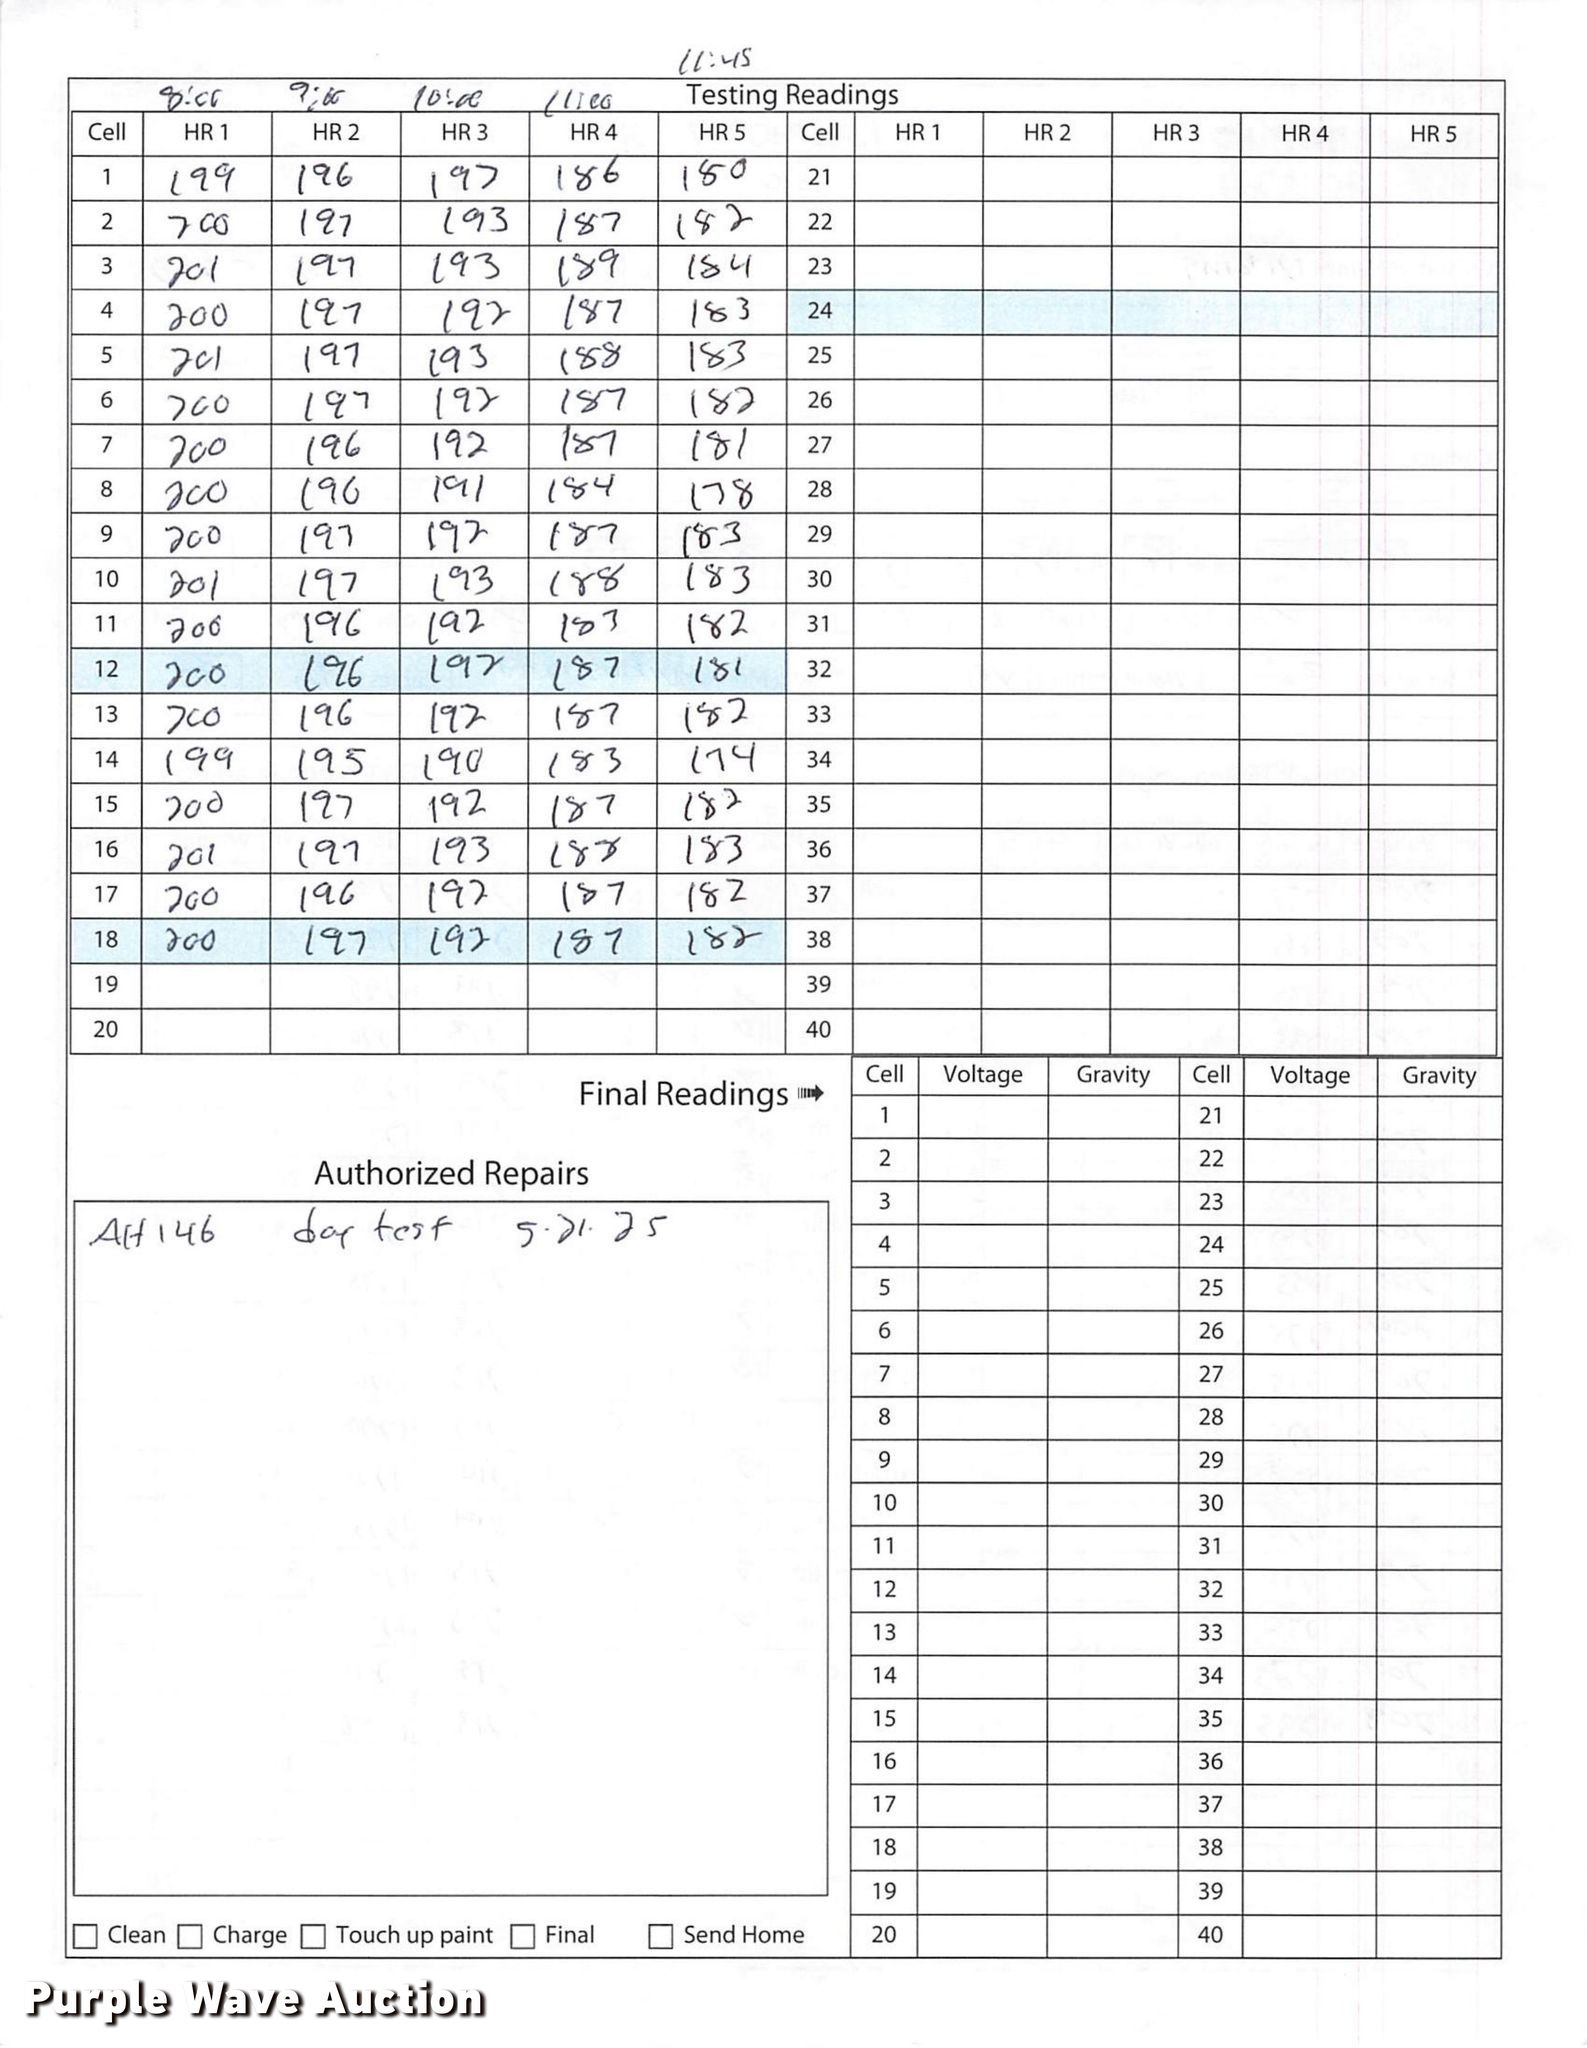 11:45
8:00 9:00 10:00 11:00 Testing Readings
Cell HR 1 HR 2 HR 3 HR 4 HR 5 Cell HR 1 HR 2 HR 3 HR 4 HR 5
1 199 196 192 186 180 21
2 200 197 193 187 182 22
3 201 197 193 189 184 23
4 200 197 192 187 183 24
5 201 197 193 188 183 25
6 200 197 192 187 182 26
7 200 196 192 187 181 27
8 200 196 191 184 178 28
9 200 197 192 187 183 29
10 201 197 193 188 183 30
11 200 196 192 183 182 31
12 200 196 192 187 181 32
13 200 196 192 187 182 33
14 199 195 190 183 174 34
15 200 197 192 187 182 35
16 201 197 193 188 183 36
17 200 196 192 187 182 37
18 200 197 192 187 182 38
19 39
20 40
Final Readings
Cell Voltage Gravity Cell Voltage Gravity
1 21
2 22
3 23
4 24
5 25
6 26
7 27
8 28
9 29
10 30
11 31
12 32
13 33
14 34
15 35
16 36
17 37
18 38
19 39
20 40
Authorized Repairs
AH 146 test 5.21.25
Clean Charge Touch up paint Final Send Home
Purple Wave Auction